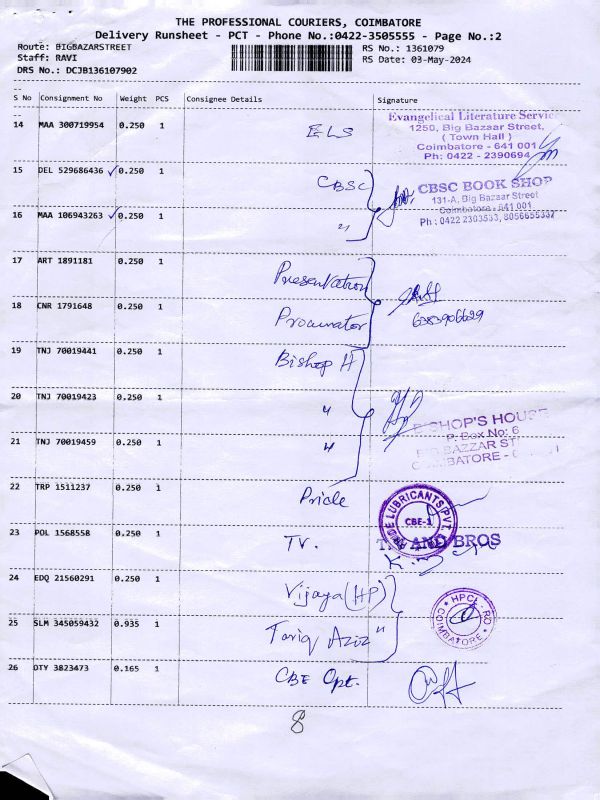 THE PROFESSIONAL COURIERS, COIMBATORE
Delivery Runsheet - PCT - Phone No.:0422-3505555 - Page No.:2
Route: BIGBAZARSTREET
RS No.: 1361079
Staff: RAVI
RS Date: 03-May-2024
DRS No.: DCJB136107902
S No Consignment No Weight PCS Consignee Details Signature
14 MAA 300719954 0.250 1 ELS
Evangelical Literature Service
1250, Big Bazaar Street,
( Town Hall )
Coimbatore - 641 001
Ph: 0422 - 2390694
15 DEL 529686436 ✓ 0.250 1 CBSC
CBSC BOOK SHOP
131-A, Big Bazaar Street
Coimbatore - 641 001
Ph : 0422 2303533, 8056655337
16 MAA 106943263 ✓ 0.250 1 "
17 ART 1891181 0.250 1 Presentation
18 CNR 1791648 0.250 1 Procurator
6383906629
19 TNJ 70019441 0.250 1 Bishop H
20 TNJ 70019423 0.250 1 "
BISHOP'S HOUSE
P. Box No: 6
BIG BAZZAR ST
COIMBATORE -
21 TNJ 70019459 0.250 1 "
22 TRP 1511237 0.250 1 Pride
PRIDE LUBRICANTS PVT.
CBE-1
23 POL 1568558 0.250 1 TV.
AND BROS
24 EDQ 21560291 0.250 1 Vijaya (HP)
HPCL RO
COIMBATORE
25 SLM 345059432 0.935 1 Tariq Aziz "
26 DTY 3823473 0.165 1 CBE Opt.
8